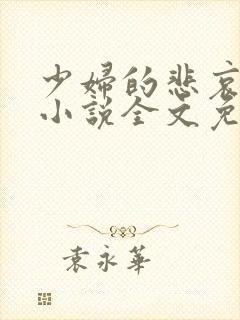 少婦的悲哀
小說全文免
袁永華